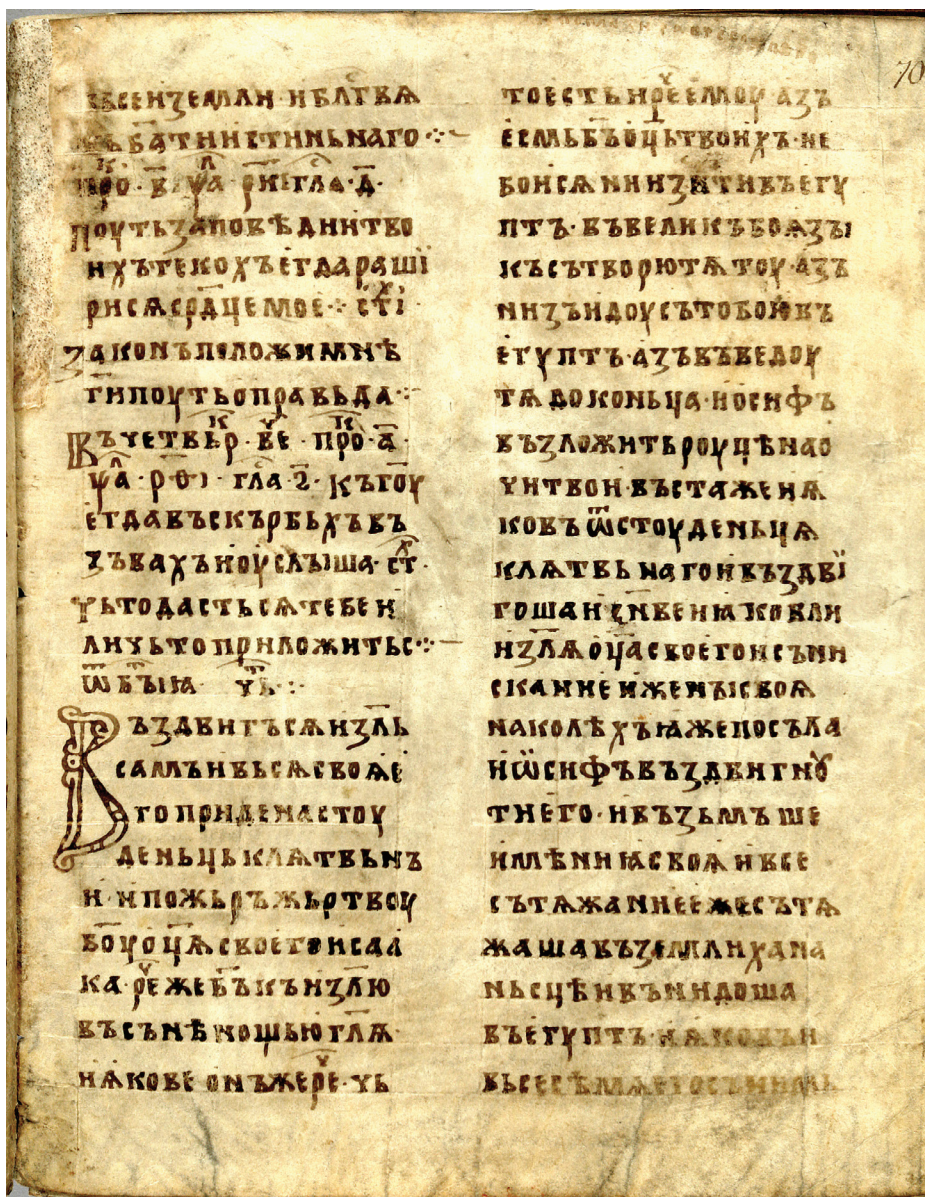 вьсеи земли · и бл҃гвѧ
бъ ба҃ти истиньнаго ⁘
про҃к · в҃ · ѱа҃л · рн҃і гла҃с · д҃ ·
поуть заповѣднитво
ихътекохъегдараші
рисѧср҃дцемое ⁘ ст҃іх ·
законъположимнѣ
г҃ипоутьоправьда ⁘
въчетвь҃рк · ве҃ч · про҃к · а҃ ·
ѱа҃л · р҃ѳі · гла҃с · ѕ҃ · къго҃у
егдавъскърбьхъвъ
зъвахъиоуслыша · ст҃х ·
чьтодастьсѧтебеи
личьтоприложитьс ⁘
ѿ бы҃тиꙗ · чть҃ ⁘
въздвигъсѧизль
самъивьсѧсвоꙗе
гоприденастоу
деньцькл҃ѧтвьнъ
и · ипожьръжьртвоу
бо҃уо҃цѧсвоегоисаа
ка · ре҃чжеб҃ъкъиз҃лю
въсънѣнощьюгл҃ѧ
иꙗковеонъжере҃ч · чь
тоестьире҃чемоу · азъ
есмьб҃ъо҃цьтвоихъ · не
боисѧнинзитивъегу
птъ · въвеликъбоѧзы
късътворютѧтоу · азъ
низъидоусътобоювъ
египтъ · азъвъведоу
тѧдоконьца · иосифъ
възложитьроуцѣнао
читвои · въстажеиꙗ
ковъѿстоуденьцѧ
клѧтвьнагоивъздві
гошаисн҃веиꙗковли
из҃лѧо҃цасвоегоисъни
сканиеиженысвоѧ
наколѣхъꙗжепосъла
иѡсифъвъздвигнꙋ
тиего · ивъзьмъше
имѣниꙗсвоѧивсе
сътѧжаниеежесътѧ
жашавъземлихана
ньсцѣивънидоша
въегуптъ · иꙗковъи
вьсесѣмѧегосънимь